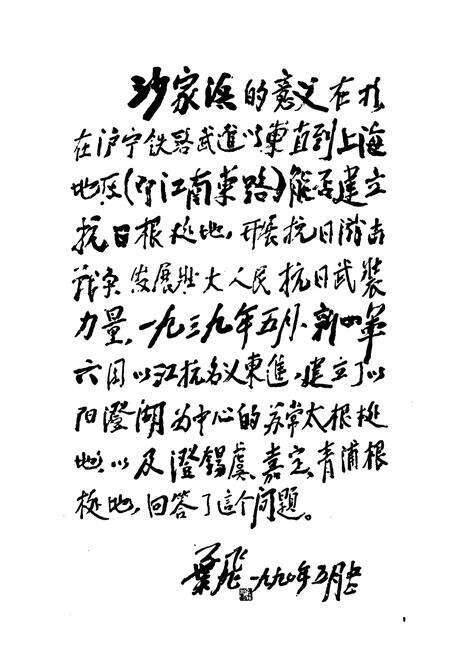 沙家浜的意义在於
在沪宁铁路武進以東直到上海
地区(即江南東路)能否建立
抗日根据地,开展抗日游击
战争发展壮大人民抗日武装
力量,一九三九年五月,新四軍
六团以江抗名义東進,建立了以
阳澄湖为中心的苏常太根据
地、以及澄锡虞、嘉定、青浦根
据地,回答了这个问題。
葉飞 一九九〇年五月